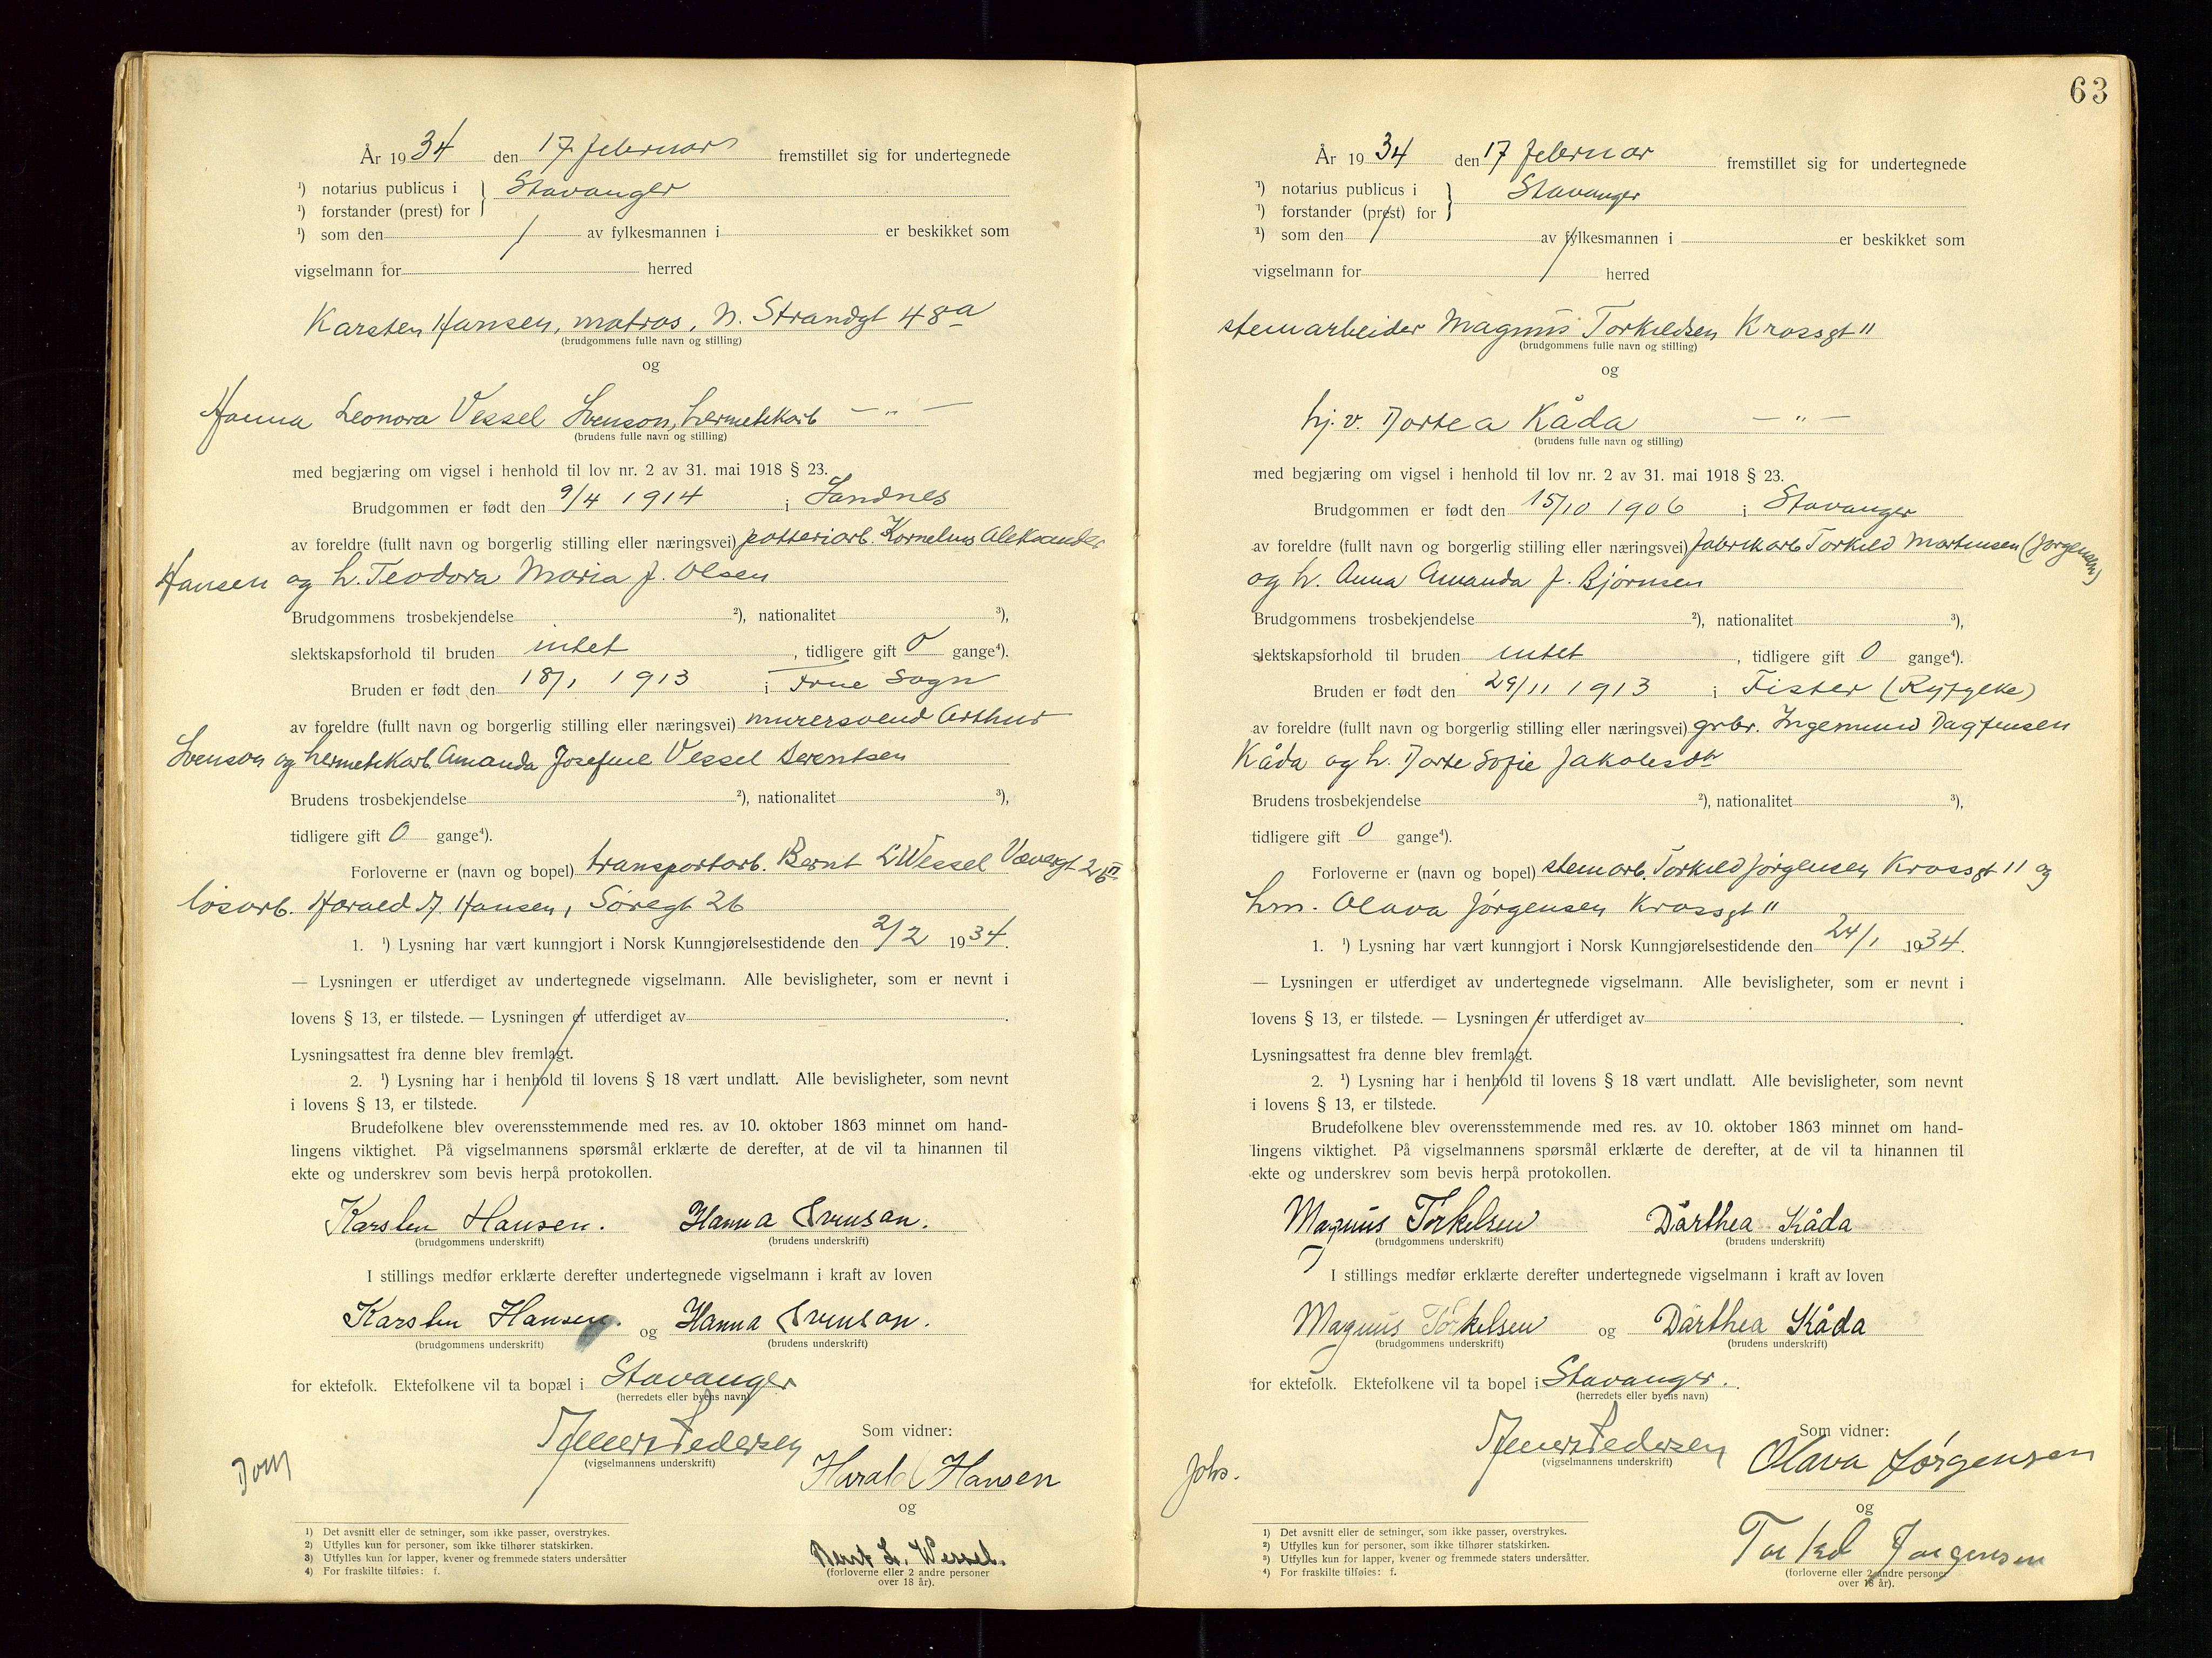 År 1934 den 17. februar fremstillet sig for undertegnede
¹) notarius publicus i } Stavanger
¹) forstander (prest) for
¹) som den / av fylkesmannen i er beskikket som
vigselmann for herred
Karsten Hansen, matros, N. Strandgt 48a
(brudgommens fulle navn og stilling)
og
Hanna Leonora Vessel Svenson, hermetikarb — „ —
(brudens fulle navn og stilling)
med begjæring om vigsel i henhold til lov nr. 2 av 31. mai 1918 § 23.
Brudgommen er født den 9/4 1914 i Sandnes
av foreldre (fullt navn og borgerlig stilling eller næringsvei) potteriarb. Kornelius Aleksander
Hansen og h. Teodora Maria f. Olsen
Brudgommens trosbekjendelse ²), nationalitet ³),
slektskapsforhold til bruden intet, tidligere gift 0 gange⁴).
Bruden er født den 18/1 1913 i Frue sogn
av foreldre (fullt navn og borgerlig stilling eller næringsvei) murersvend Arthur
Svenson og hermetikarb. Amanda Josefine Vessel Berentsen
Brudens trosbekjendelse ²), nationalitet ³),
tidligere gift 0 gange⁴).
Forloverne er (navn og bopel) transportarb. Bernt L Wessel Vævergt 26 II
løsarb. Harald A. Hansen, Søregt 26
1. ¹) Lysning har vært kunngjort i Norsk Kunngjørelsestidende den 2/2 1934.
— Lysningen er utferdiget av undertegnede vigselmann. Alle bevisligheter, som er nevnt i
lovens § 13, er tilstede. — Lysningen er utferdiget av .
Lysningsattest fra denne blev fremlagt.
2. ¹) Lysning har i henhold til lovens § 18 vært undlatt. Alle bevisligheter, som nevnt
i lovens § 13, er tilstede.
Brudefolkene blev overensstemmende med res. av 10. oktober 1863 minnet om hand-
lingens viktighet. På vigselmannens spørsmål erklærte de derefter, at de vil ta hinannen til
ekte og underskrev som bevis herpå protokollen.
Karsten Hansen. Hanna Svenson.
(brudgommens underskrift) (brudens underskrift)
I stillings medfør erklærte derefter undertegnede vigselmann i kraft av loven
Karsten Hansen. og Hanna Svenson.
(brudgommens underskrift) (brudens underskrift)
for ektefolk. Ektefolkene vil ta bopæl i Stavanger
(herredets eller byens navn)
Pedersen
(vigselmannens underskrift)
Som vidner:
Harald Hansen
og
Bernt L. Wessel.
(forloverne eller 2 andre personer
over 18 år).
1) Det avsnitt eller de setninger, som ikke passer, overstrykes.
2) Utfylles kun for personer, som ikke tilhører statskirken.
3) Utfylles kun for lapper, kvener og fremmede staters undersåtter
4) For fraskilte tilføies: f.
63
År 1934 den 17 februar fremstillet sig for undertegnede
¹) notarius publicus i } Stavanger
¹) forstander (prest) for
¹) som den / av fylkesmannen i er beskikket som
vigselmann for herred
stenarbeider Magnus Torkildsen Krossgt 11
(brudgommens fulle navn og stilling)
og
hj. v. Dortea Kåda — „ —
(brudens fulle navn og stilling)
med begjæring om vigsel i henhold til lov nr. 2 av 31. mai 1918 § 23.
Brudgommen er født den 15/10 1906 i Stavanger
av foreldre (fullt navn og borgerlig stilling eller næringsvei) fabrikarb Torkild Martinsen (Jørgensen)
og h. Anna Amanda f. Bjørnsen
Brudgommens trosbekjendelse ²), nationalitet ³),
slektskapsforhold til bruden intet, tidligere gift 0 gange⁴).
Bruden er født den 29/11 1913 i Fister (Ryfylke)
av foreldre (fullt navn og borgerlig stilling eller næringsvei) grbr. Ingemund Dagfinsen
Kåda og h. Dorte Sofie Jakobsdtr
Brudens trosbekjendelse ²), nationalitet ³),
tidligere gift 0 gange⁴).
Forloverne er (navn og bopel) stenarb. Torkild Jørgensen Krossgt 11 og
hm. Olava Jørgensen Krossgt 11
1. ¹) Lysning har vært kunngjort i Norsk Kunngjørelsestidende den 24/1 1934.
— Lysningen er utferdiget av undertegnede vigselmann. Alle bevisligheter, som er nevnt i
lovens § 13, er tilstede. — Lysningen er utferdiget av .
Lysningsattest fra denne blev fremlagt.
2. ¹) Lysning har i henhold til lovens § 18 vært undlatt. Alle bevisligheter, som nevnt
i lovens § 13, er tilstede.
Brudefolkene blev overensstemmende med res. av 10. oktober 1863 minnet om hand-
lingens viktighet. På vigselmannens spørsmål erklærte de derefter, at de vil ta hinannen til
ekte og underskrev som bevis herpå protokollen.
Magnus Torkelsen Dårthea Kåda
(brudgommens underskrift) (brudens underskrift)
I stillings medfør erklærte derefter undertegnede vigselmann i kraft av loven
Magnus Torkelsen og Dårthea Kåda
(brudgommens underskrift) (brudens underskrift)
for ektefolk. Ektefolkene vil ta bopel i Stavanger.
(herredets eller byens navn)
Pedersen
(vigselmannens underskrift)
Som vidner:
Olava Jørgensen
Johs.
og
Torkel Jørgensen
(forloverne eller 2 andre personer
over 18 år).
1) Det avsnitt eller de setninger, som ikke passer, overstrykes.
2) Utfylles kun for personer, som ikke tilhører statskirken.
3) Utfylles kun for lapper, kvener og fremmede staters undersåtter.
4) For fraskilte tilføies: f.